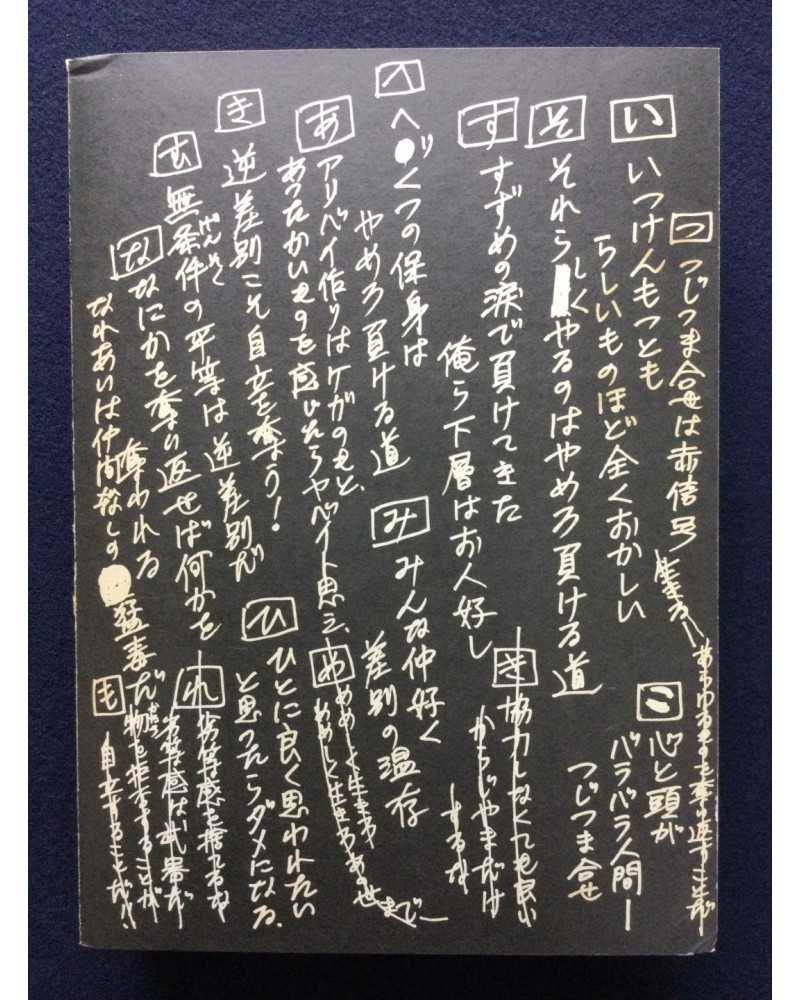 い
いつけんもつとも
らしいものほど全くおかしい
つ
つじつま合せは赤信号
そ
それらしくやるのはやめろ負ける道
す
すずめの涙で負けてきた
俺ら下層はお人好し
へ
へりくつの保身は
やめろ負ける道
あ
アリバイ作りはケガのもと、
あったかいものを感じたらヤベイト思え、
き
逆差別こそ自立を奪う!
む
無条件の平等は逆差別だ
な
なにかを奪い返せば何かを
奪われる
なれあいは仲間殺しの猛毒だ
こ
心と頭が
バラバラ人間ー
つじつま合せ
生きる
あらゆるものを奪い返すことだ
き
協力しなくても良い
からじやまだけ
するな
み
みんな仲好く
差別の温存
め
めめしく生きろあの世まで
ひ
ひとに良く思われたい
と思ったらダメになる.
れ
劣等感を捨てるな
劣等感は武器だ
も
物を拒否することが
自立することだ!